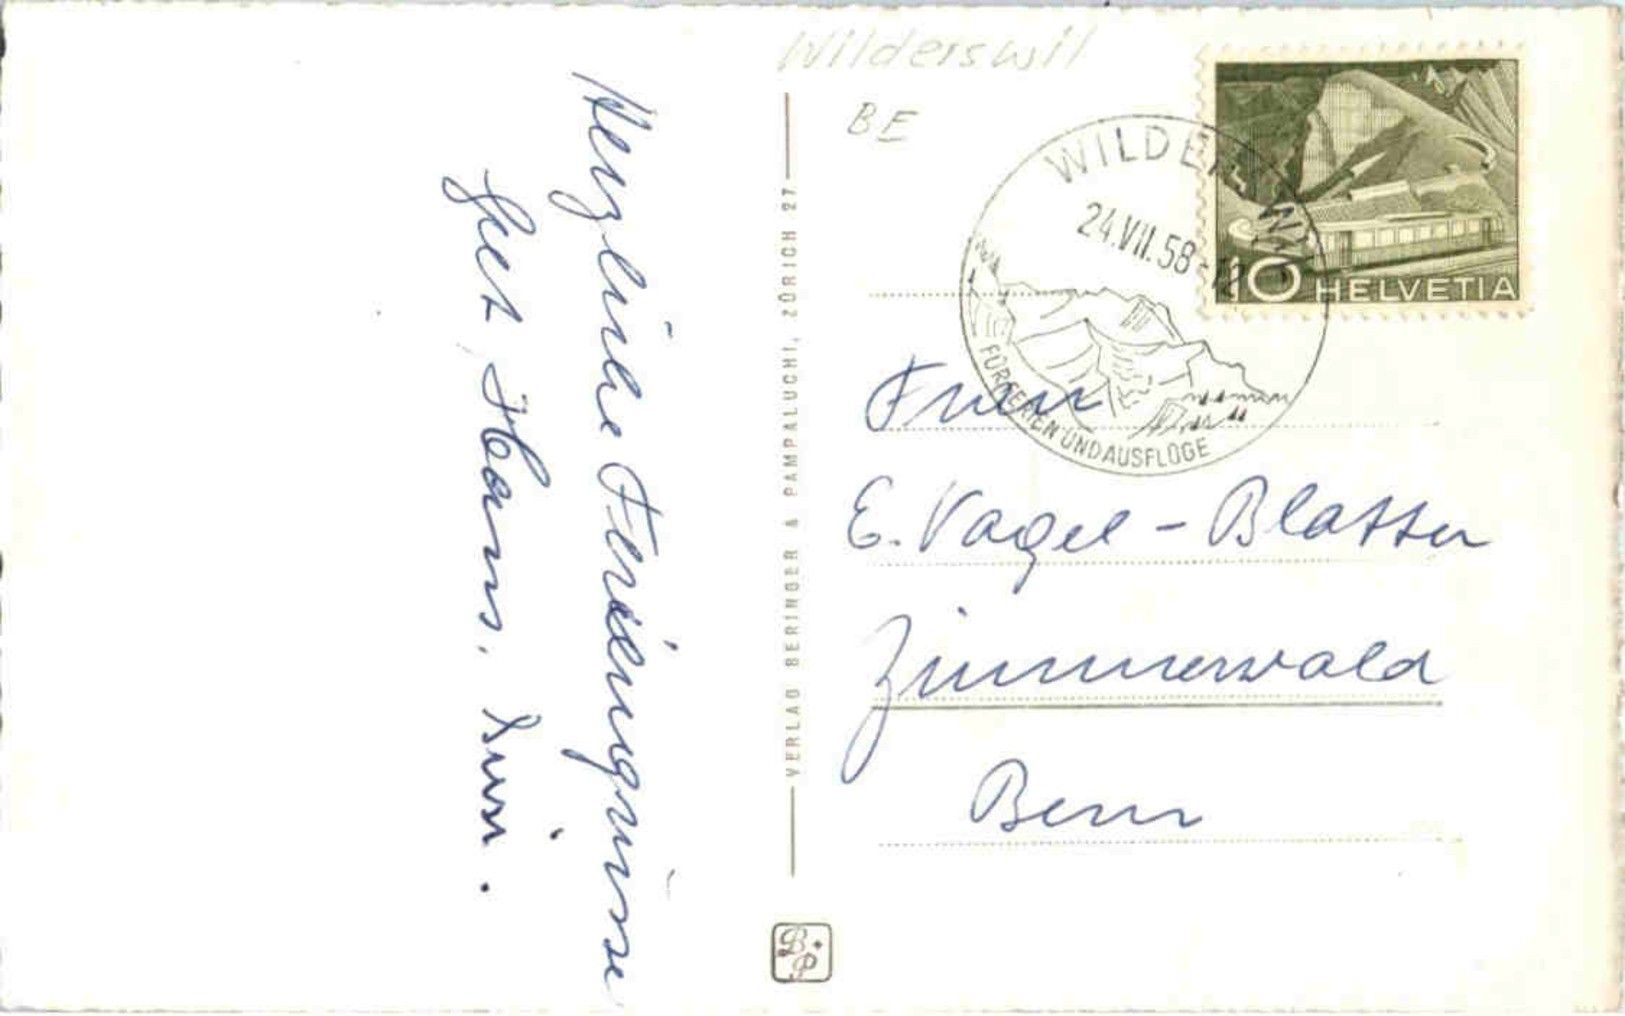 Herzliche Feriengrüsse
Hans.
VERLAG BERINGER & PAMPALUCHI, ZÜRICH 27
Wilderswil
BE
WILDERSWIL
24.VII.58-12
FÜR FERIEN UND AUSFLÜGE
10 HELVETIA
Frau
E. Vogel-Blatter
Zimmerwald
Bern
B.P